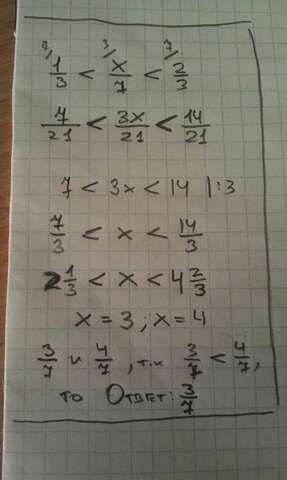 7/ 1/3 < 3/ x/7 < 7/ 2/3
7/21 < 3x/21 < 14/21
7 < 3x < 14 | :3
7/3 < x < 14/3
2 1/3 < x < 4 2/3
x = 3 ; x = 4
3/7 и 4/7 , т.к 3/7 < 4/7 ,
то Ответ: 3/7